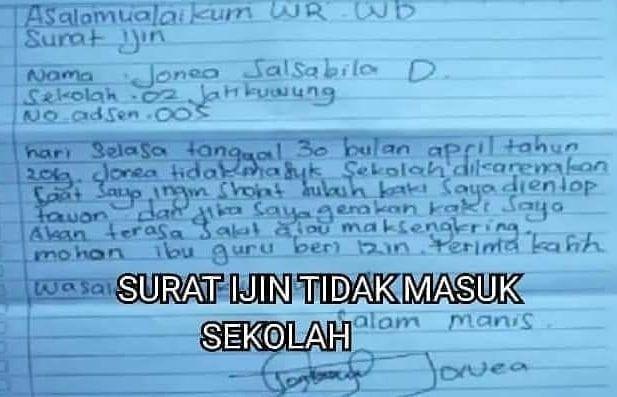 Asalamualaikum WR. Wb
Surat ijin
Nama : Jonea Salsabila D.
Sekolah : 02 Jatikuwung
No. adsen : 005
hari Selasa tanggal 30 bulan april tahun
2019. Jonea tidak masuk Sekolah dikarenakan
Saat Saya ingin Sholat Subuh kaki Saya dientop
tawon dan jika Saya gerakan kaki Saya
Akan terasa Sakit atau maksengkring.
mohon ibu guru beri izin. terima kasih
wasal
SURAT IJIN TIDAK MASUK
SEKOLAH
Salam manis.
Jonea